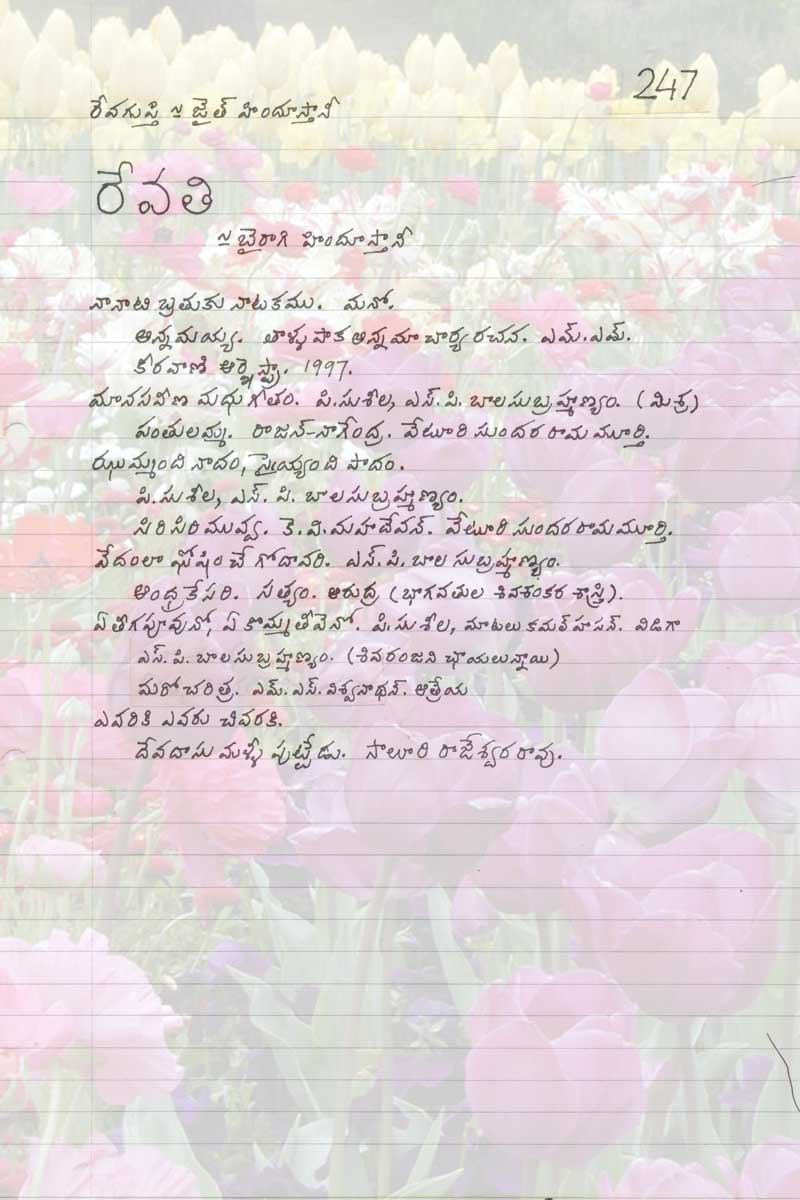 247
రేవగుప్తి ~ జైత్ హిందూస్తానీ
రేవతి
~ బైరాగి హిందూస్తానీ
నానాటి బ్రతుకు నాటకము. మనో.
అన్నమయ్య. తాళ్ళపాక అన్నమాచార్య రచన. ఎమ్.ఎమ్.
కీరవాణి ఆర్కెస్ట్రా. 1997.
మానసవీణ మధుగీతం. పి.సుశీల, ఎస్.పి.బాలసుబ్రహ్మణ్యం. (మిశ్ర)
పంతులమ్మ. రాజన్-నాగేంద్ర. వేటూరి సుందరరామమూర్తి.
ఝుమ్మంది నాదం, సైయ్యంది పాదం.
పి.సుశీల, ఎస్. పి. బాలసుబ్రహ్మణ్యం.
సిరిసిరిమువ్వ. కె.వి.మహదేవన్. వేటూరి సుందరరామమూర్తి.
వేదంలా ఘోషించే గోదావరి. ఎస్.పి.బాలసుబ్రహ్మణ్యం.
ఆంధ్రకేసరి. సత్యం. ఆరుద్ర (భాగవతుల శివశంకర శాస్త్రి).
ఏ తీగపూవునో, ఏ కొమ్మతేటినో. పి.సుశీల, మాటలు కమల్ హసన్. విడిగా
ఎస్.పి.బాలసుబ్రహ్మణ్యం. (శివరంజని ఛాయలున్నాయి)
మరో చరిత్ర. ఎమ్.ఎస్.విశ్వనాథన్. ఆత్రేయ
ఎవరికి ఎవరు చివరకి.
దేవదాసు మళ్ళీ పుట్టేడు. సాలూరి రాజేశ్వరరావు.